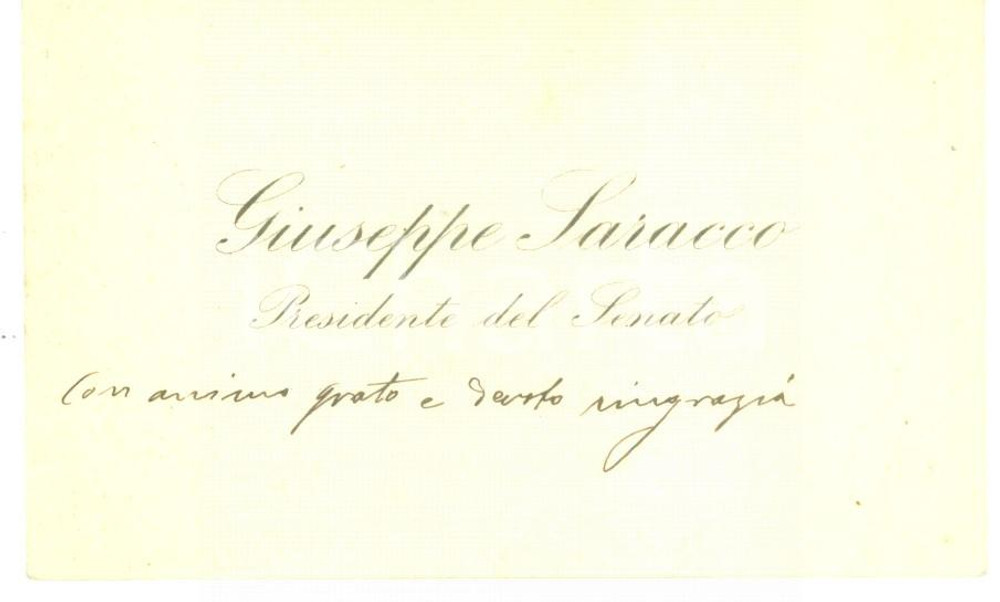 Giuseppe Saracco
Presidente del Senato
Con animo grato e devoto ringrazia